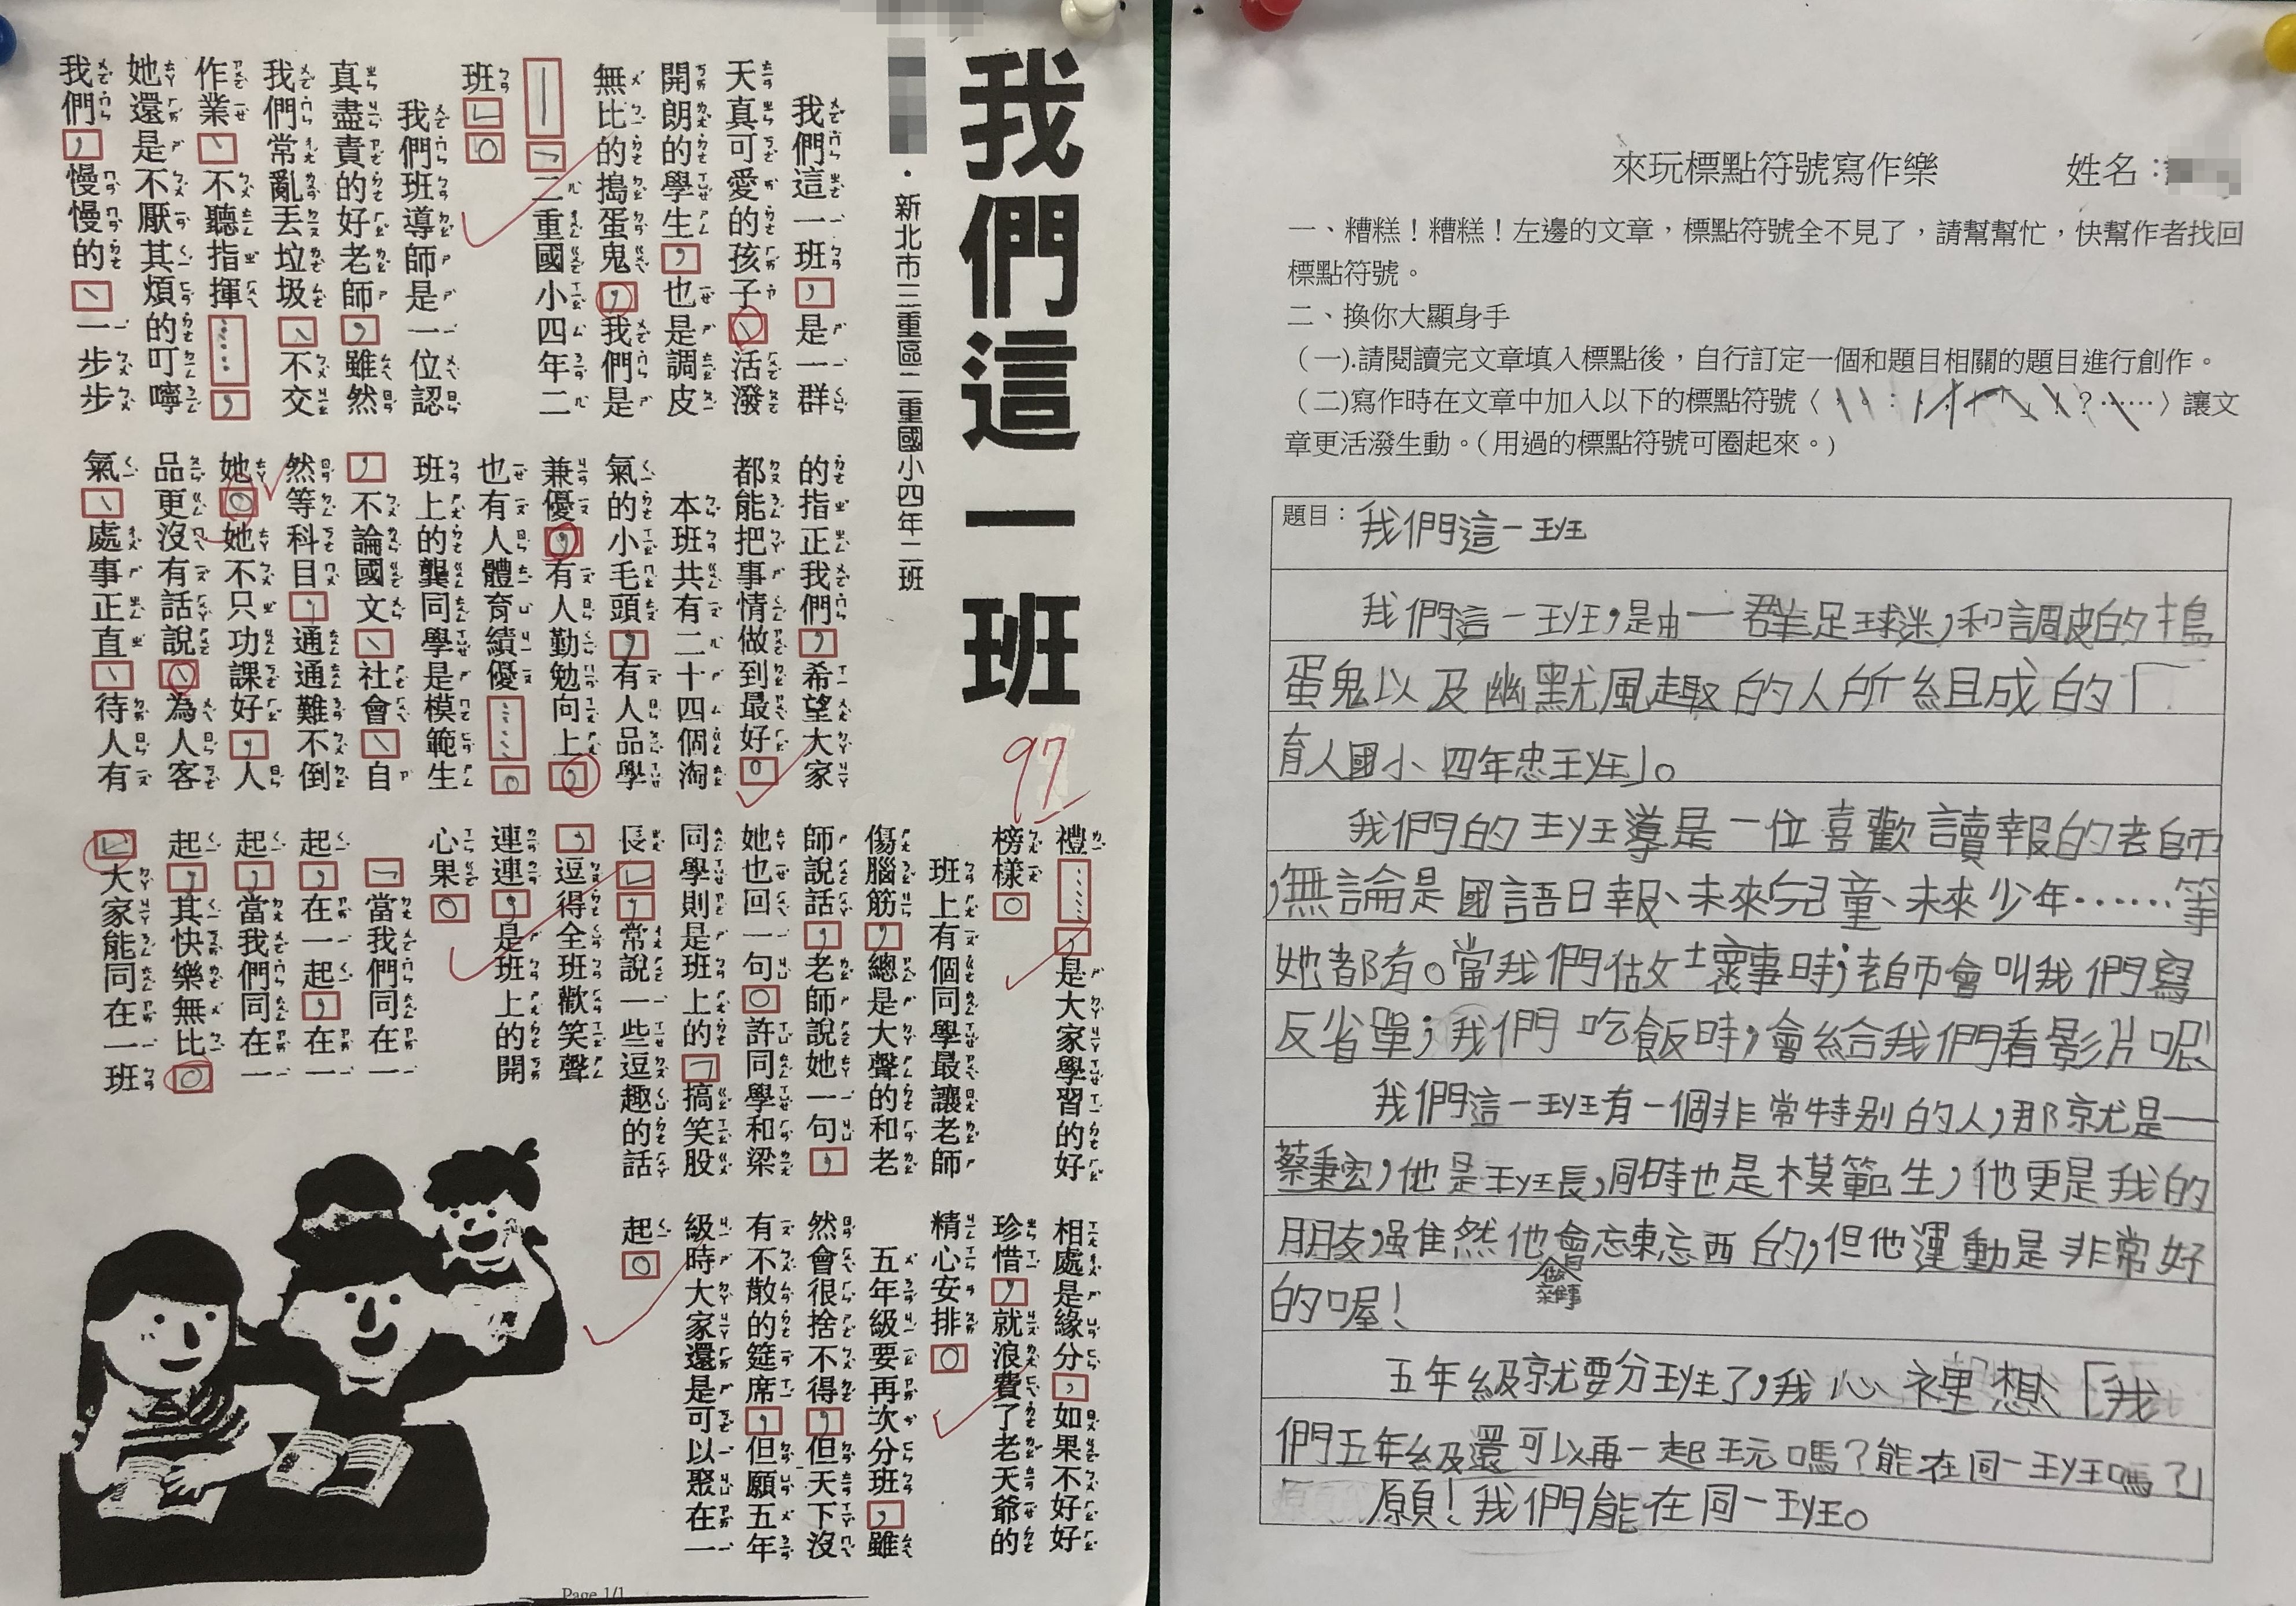 我們這一班
・新北市三重區二重國小四年二班
我們這一班，是一群
天真可愛的孩子、活潑
開朗的學生，也是調皮
無比的搗蛋鬼，我們是
—「二重國小四年二
班」。
我們班導師是一位認
真盡責的好老師，雖然
我們常亂丟垃圾、不交
作業、不聽指揮……，
她還是不厭其煩的叮嚀
我們，慢慢的、一步步
的指正我們，希望大家
都能把事情做到最好。
本班共有二十四個淘
氣的小毛頭，有人品學
兼優，有人勤勉向上，
也有人體育績優……。
班上的龔同學是模範生
，不論國文、社會、自
然等科目，通通難不倒
她。她不只功課好，人
品更沒有話說、為人客
氣、處事正直、待人有
97
禮……，是大家學習的好
榜樣。
班上有個同學最讓老師
傷腦筋，總是大聲的和老
師說話，老師說她一句，
她也回一句。許同學和梁
同學則是班上的「搞笑股
長」，常說一些逗趣的話
，逗得全班歡笑聲
連連，是班上的開
心果。
「當我們同在一
起，在一起，在一
起，當我們同在一
起，其快樂無比。
」大家能同在一班
相處是緣分，如果不好好
珍惜，就浪費了老天爺的
精心安排。
五年級要再次分班，雖
然會很捨不得，但天下沒
有不散的筵席，但願五年
級時大家還是可以聚在一
起。
Page 1/1
來玩標點符號寫作樂 姓名：
一、糟糕！糟糕！左邊的文章，標點符號全不見了，請幫幫忙，快幫作者找回
標點符號。
二、換你大顯身手
（一).請閱讀完文章填入標點後，自行訂定一個和題目相關的題目進行創作。
（二)寫作時在文章中加入以下的標點符號〈，、。：；「」！？……〉讓文
章更活潑生動。(用過的標點符號可圈起來。)
題目：我們這一班
我們這一班，是由一群足球迷，和調皮的搗
蛋鬼以及幽默風趣的人所組成的「
育人國小四年忠班」。
我們的班導是一位喜歡讀報的老師
，無論是國語日報、未來兒童、未來少年……等
她都看。當我們做壞事時，老師會叫我們寫
反省單；我們吃飯時，會給我們看影片呢！
我們這一班有一個非常特別的人，那就是—
蔡秉宏，他是班長，同時也是模範生，他更是我的
朋友，雖然他做雜事會忘東忘西的，但他運動是非常好
的喔！
五年級就要分班了，我心裡想「我
們五年級還可以再一起玩嗎？能在同一班嗎？」
願！我們能在同一班。